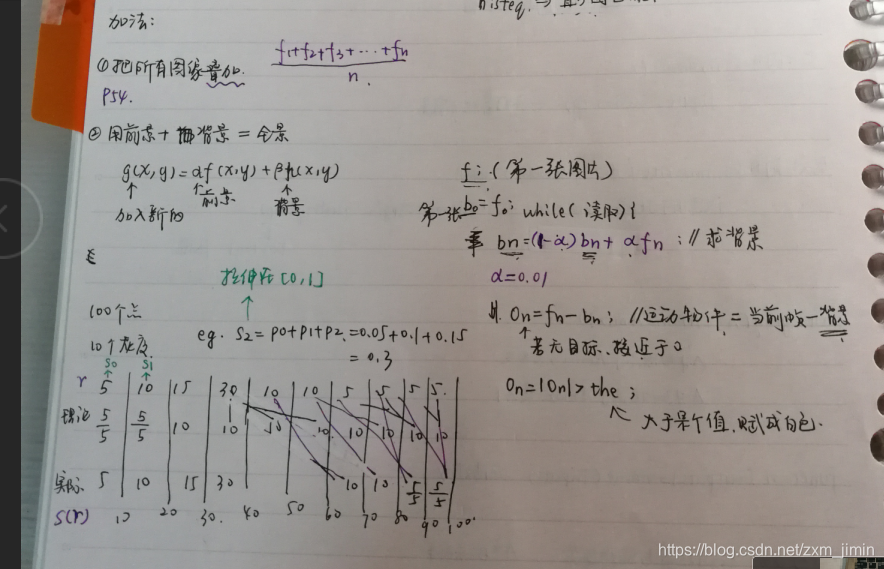 histeq.
加法:
①把所有图像叠加. f1+f2+f3+…+fn / n.
P54.
②用前景+背景=全景
g(x,y)=αf(x,y)+βh(x,y)
前景
加入新的 背景
f:(第一张图片)
第一张 b0=f0; while(读取){
bn=(1-α)bn+αfn ;//求背景
α=0.01
On=fn-bn; //运动物件=当前帧-背景
若无目标、接近于0
On=|On|>the ;
大于某个值,赋成白色.
拉伸在[0,1]
100个点
10个灰度.
eg. S2=P0+P1+P2=0.05+0.1+0.15
=0.3
S0 S1
r 5 10 15 30 10 10 5 5 5 5.
理论 5/5 5/5 10 10 10 10 10 10 10 10
实际 5 10 15 30 10 10 5/5 5/5
S(r) 10 20 30. 40 50 60 70 80 90 100.
https://blog.csdn.net/zxm_jimin